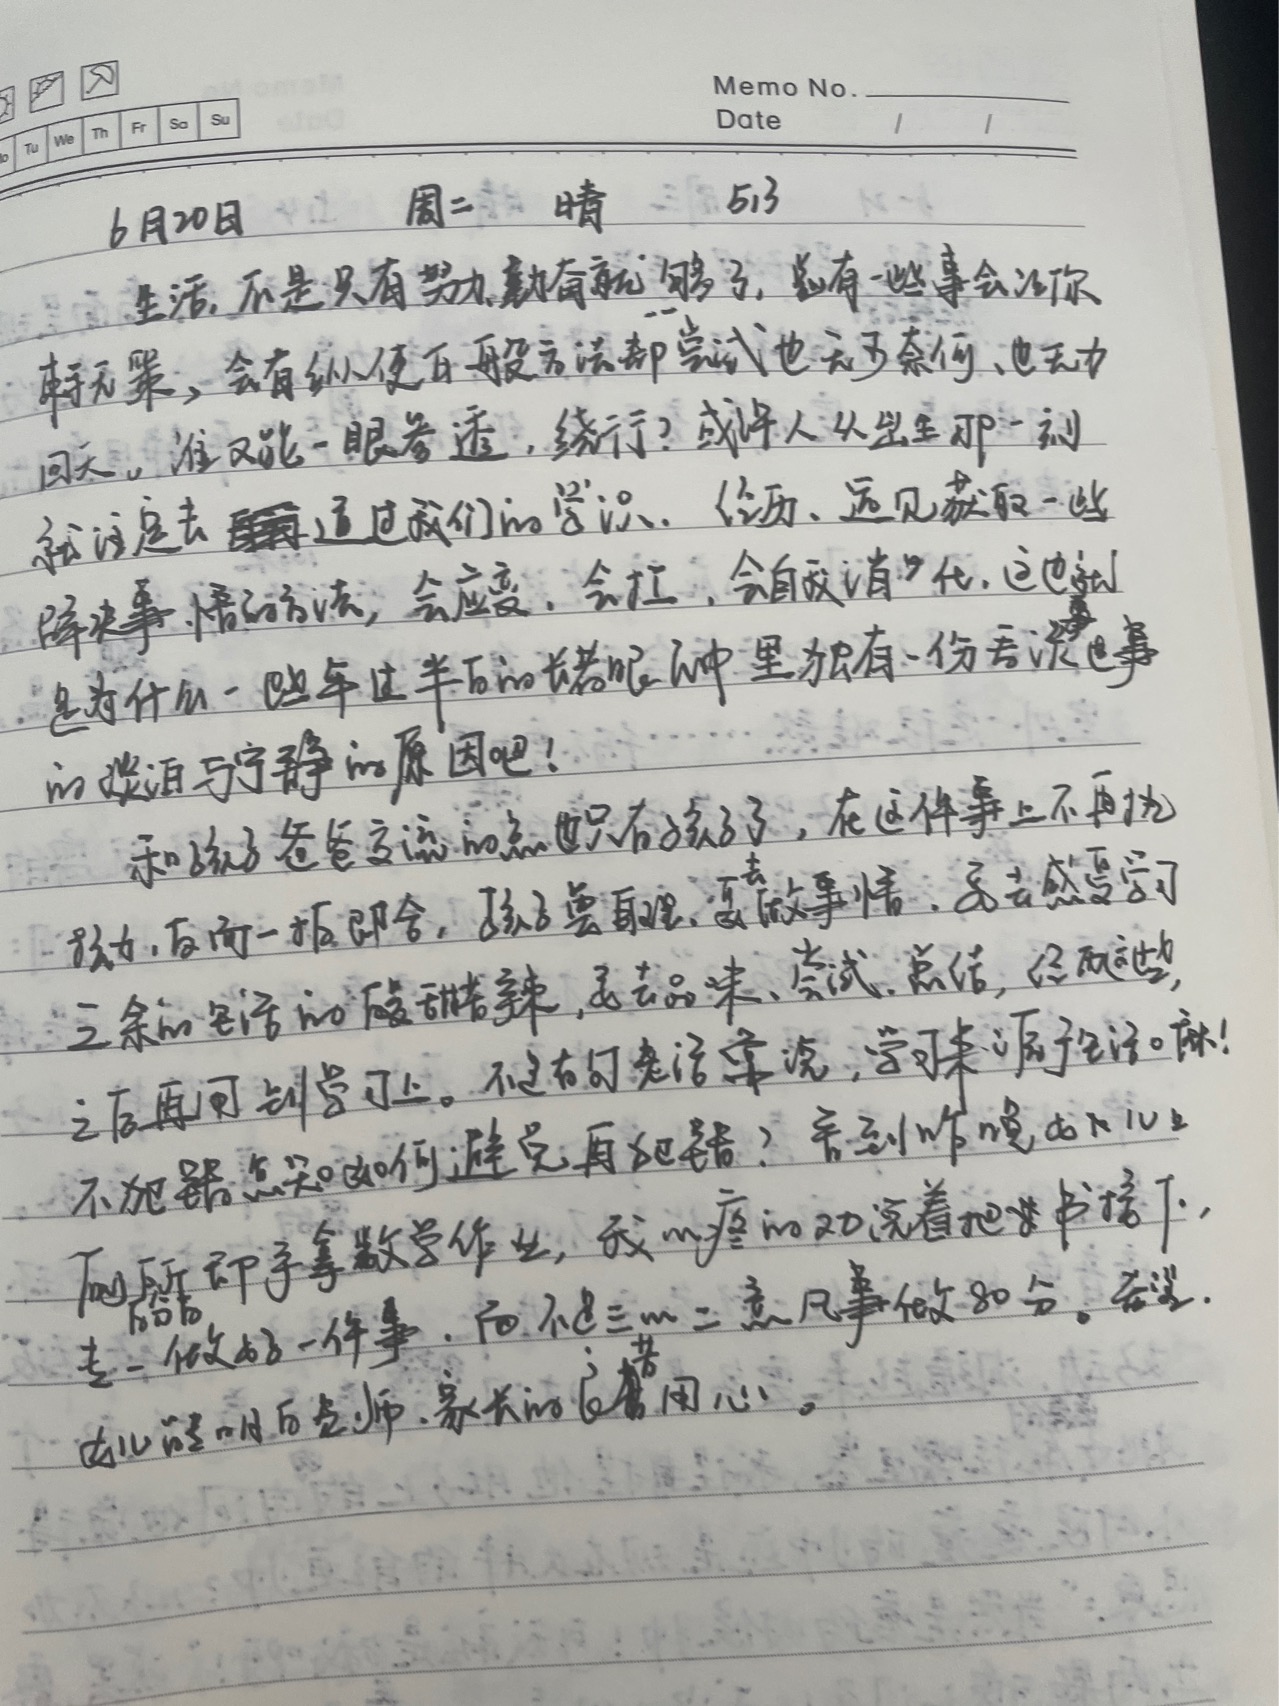 Memo No.
Date / /
Tu We Th Fr Sa Su
6月20日 周二 晴 513
生活,不是只有努力、勤奋就够了,总有一些事会让你
束手无策,会有纵使百般方法都尝试也无可奈何、也无力
回天。谁又能一眼参透,绕行?或许人从出生那一刻
就注定去通过我们的学识、经历、远见获取一些
解决事情的方法,会应变,会扛,会自我消化,这也就
是为什么一些年过半百的长者眼神里独有一份看淡世事
的淡泊与宁静的原因吧!
和孩子爸爸交流的点也只有孩子了,在这件事上不再扰
,反而一拍即合,孩子要自理,要去做事情,要去感受学习
之余的生活的酸甜苦辣,要去品味、尝试、总结,经历这些,
之后再回到学习上。不是有句老话常说,学习来源于生活嘛!
不犯错怎知如何避免再犯错?看到昨晚女儿上
厕所却手拿数学作业,我心疼的劝说着把书接下,
专一做好一件事,而不是三心二意凡事做80分。希望,
女儿能明白老师、家长的良苦用心。